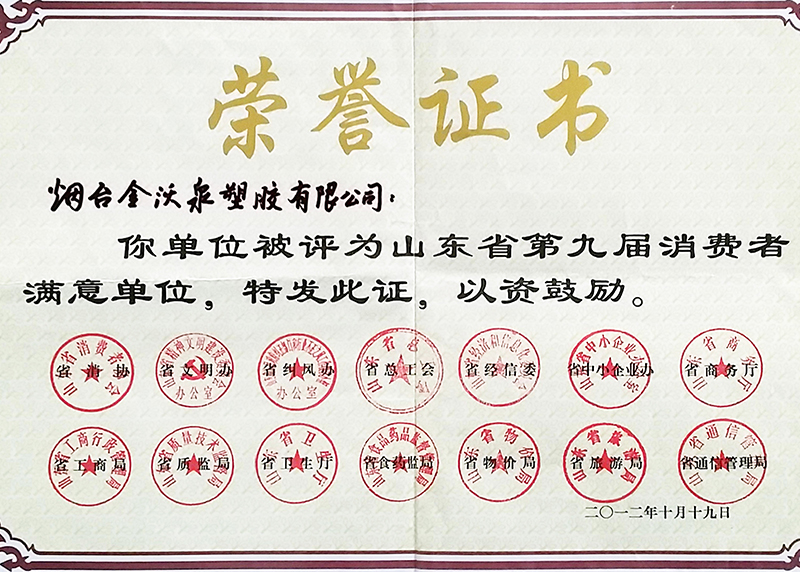 荣誉证书
烟台金沃泉塑胶有限公司:
你单位被评为山东省第九届消费者
满意单位，特发此证，以资鼓励。
省消协 省文明办 省纠风办 省总工会 省经信委 省中小企业办 省商务厅
省工商局 省质监局 省卫生厅 省食药监局 省物价局 省旅游局 省通信管理局
二〇一二年十月十九日